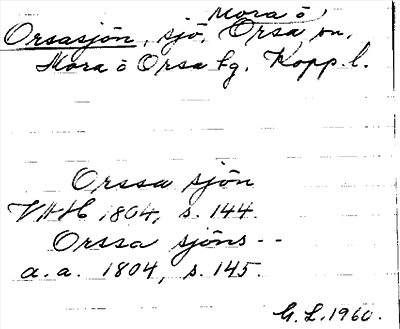 Mora o
Orsasjön, sjö, Orsa sn,
Mora o Orsa tg. Kopp. l.
Orssa sjön
VAH 1804, s. 144.
Orssa sjöns --
a.a. 1804, s. 145.
G. L. 1960.